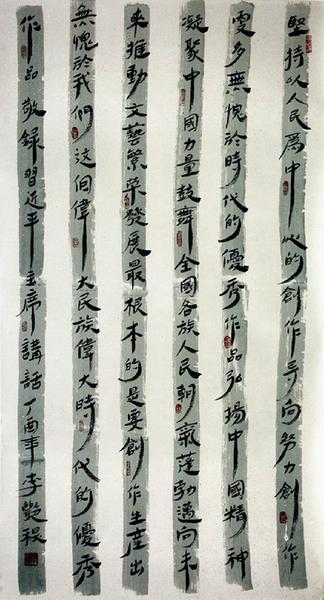 堅持以人民爲中心的創作导向努力創作
更多無愧於時代的優秀作品弘揚中國精神
凝聚中國力量鼓舞全國各族人民朝氣蓬勃邁向未
來推動文藝繁榮發展最根本的是要創作生產出
無愧於我們这個偉大民族偉大時代的優秀
作品敬錄習近平主席講話丁酉年李艷